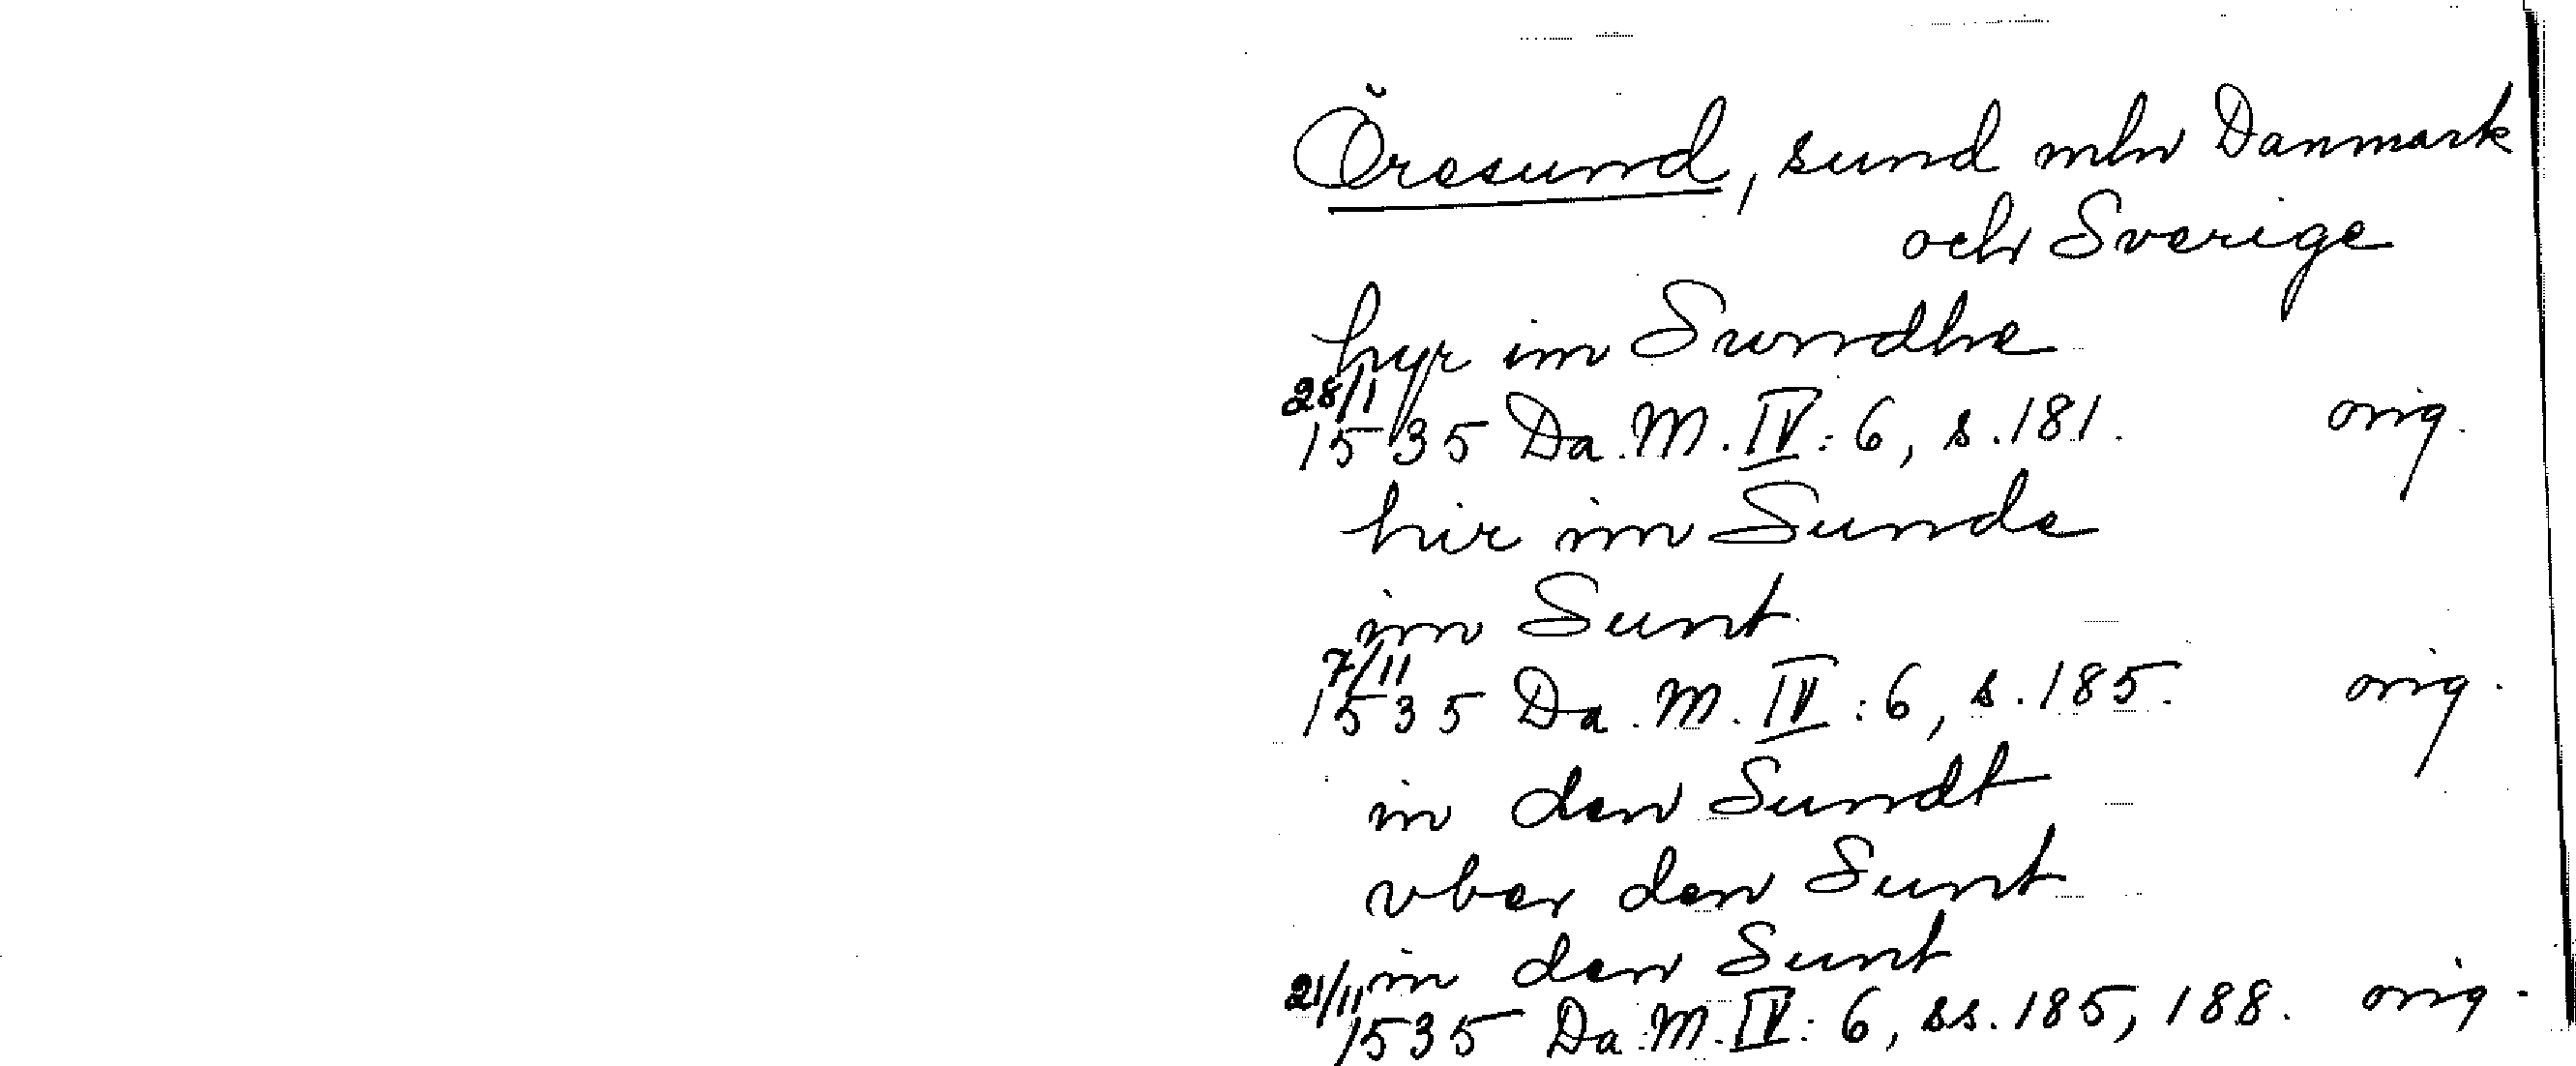 Öresund, sund mln Danmark
och Sverige
hyr im Sundhe
28/1
1535 Da. M. IV: 6, s. 181. orig.
hir im Sunde
im Sunt
7/11
1535 Da. M. IV: 6, s. 185. orig.
in den Sundt
vber den Sunt
in den Sunt
21/11
1535 Da. M. IV: 6, ss. 185, 188. orig.